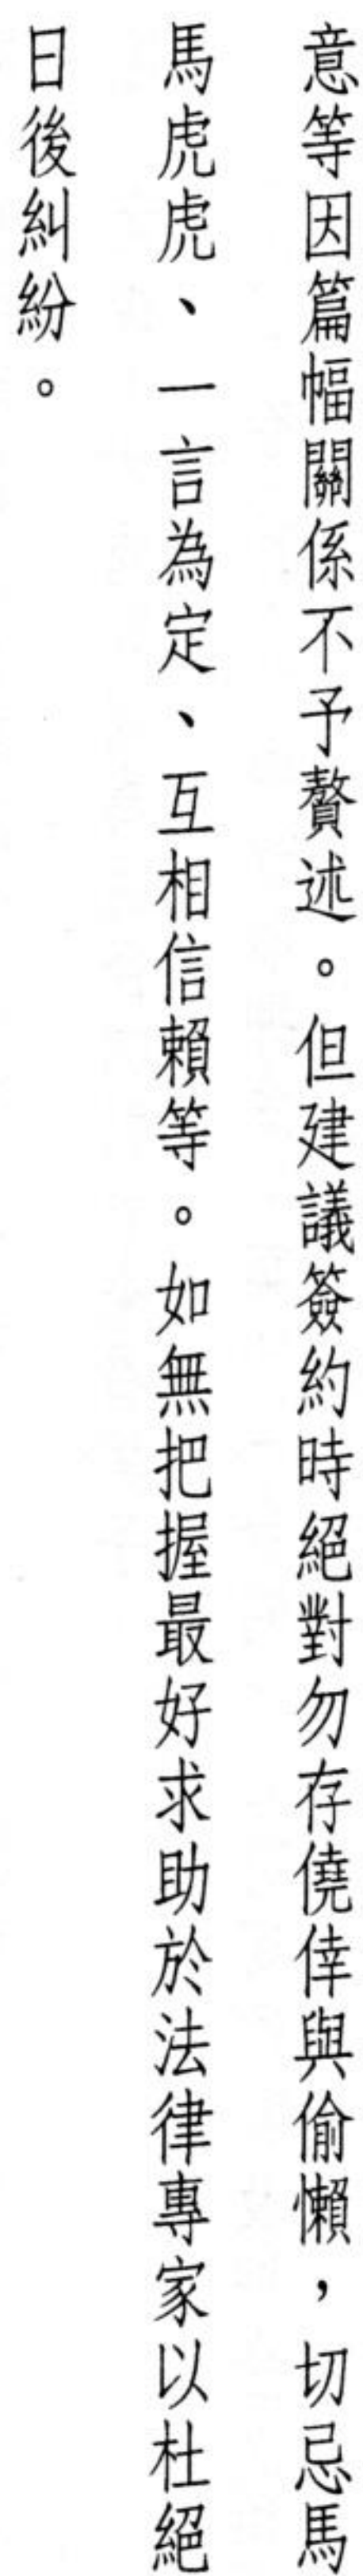 意等因篇幅關係不予贅述。但建議簽約時絕對勿存僥倖與偷懶，切忌馬
馬虎虎、一言為定、互相信賴等。如無把握最好求助於法律專家以杜絕
日後糾紛。